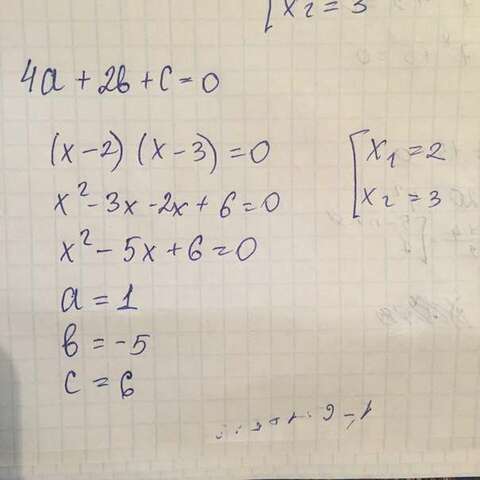 x₂ = 3
4a + 2b + c = 0
(x - 2) (x - 3) = 0
[ x₁ = 2
x₂ = 3
x² - 3x - 2x + 6 = 0
x² - 5x + 6 = 0
a = 1
b = -5
c = 6